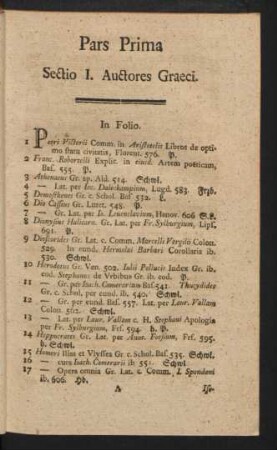 Pars Prima
Sectio I. Auctores Graeci.
In Folio.
1 Petri Victorii Comm. in Aristotelis Libros de opti-
mo statu civitatis, Florent. 576. P.
2 Franc. Robortelli Explic. in eiusd. Artem poeticam,
Bas. 555. P.
3 Athenaeus Gr. ap. Ald. 514. Schwl.
4 — Lat. per Iac. Dalechampium, Lugd. 583. Frzb.
5 Demosthenes Gr. c. Schol. Bas 532. L.
6 Dio Cassius Gr. Lutet. 548. P.
7 — Gr. Lat. per Io. Leunclavium, Hanov. 606
8 Dionysius Halicarn. Gr. Lat. per Fr. Sylburgium, Lips.
691. P.
9 Dioscorides Gr. Lat. c. Comm. Marcelli Vergilii Colon.
529. In eund. Hermolai Barbari Corollaria ib.
530. Schwl.
10 Herodotus Gr. Ven. 502. Iulii Pollucis Index Gr. ib.
eod. Stephanus de Vrbibus Gr. ib. eod. P.
11 — Gr. per Ioach. Camerarium Bas. 541. Thucydides
Gr. c. Schol. per eund. ib. 540. Schwl.
12 — Gr. per eund. Bas. 557. Lat. per Laur. Vallam
Colon. 562. Schwl.
13 — Lat. per Laur. Vallam c. H. Stephani Apologia
per Fr. Sylburgium, Frf. 594. h. P.
14 Hippocrates Gr. Lat. per Anut. Foesium, Frf. 595.
h. Schwl.
15 Homeri Ilias et Vlyssea Gr c. Schol. Bas. 535. Schwl.
16 — cura Ioach. Camerarii ib. 551. Schwl.
17 — Opera omnia Gr. Lat. c. Comm. I. Spondani
ib. 606. Hb.
A